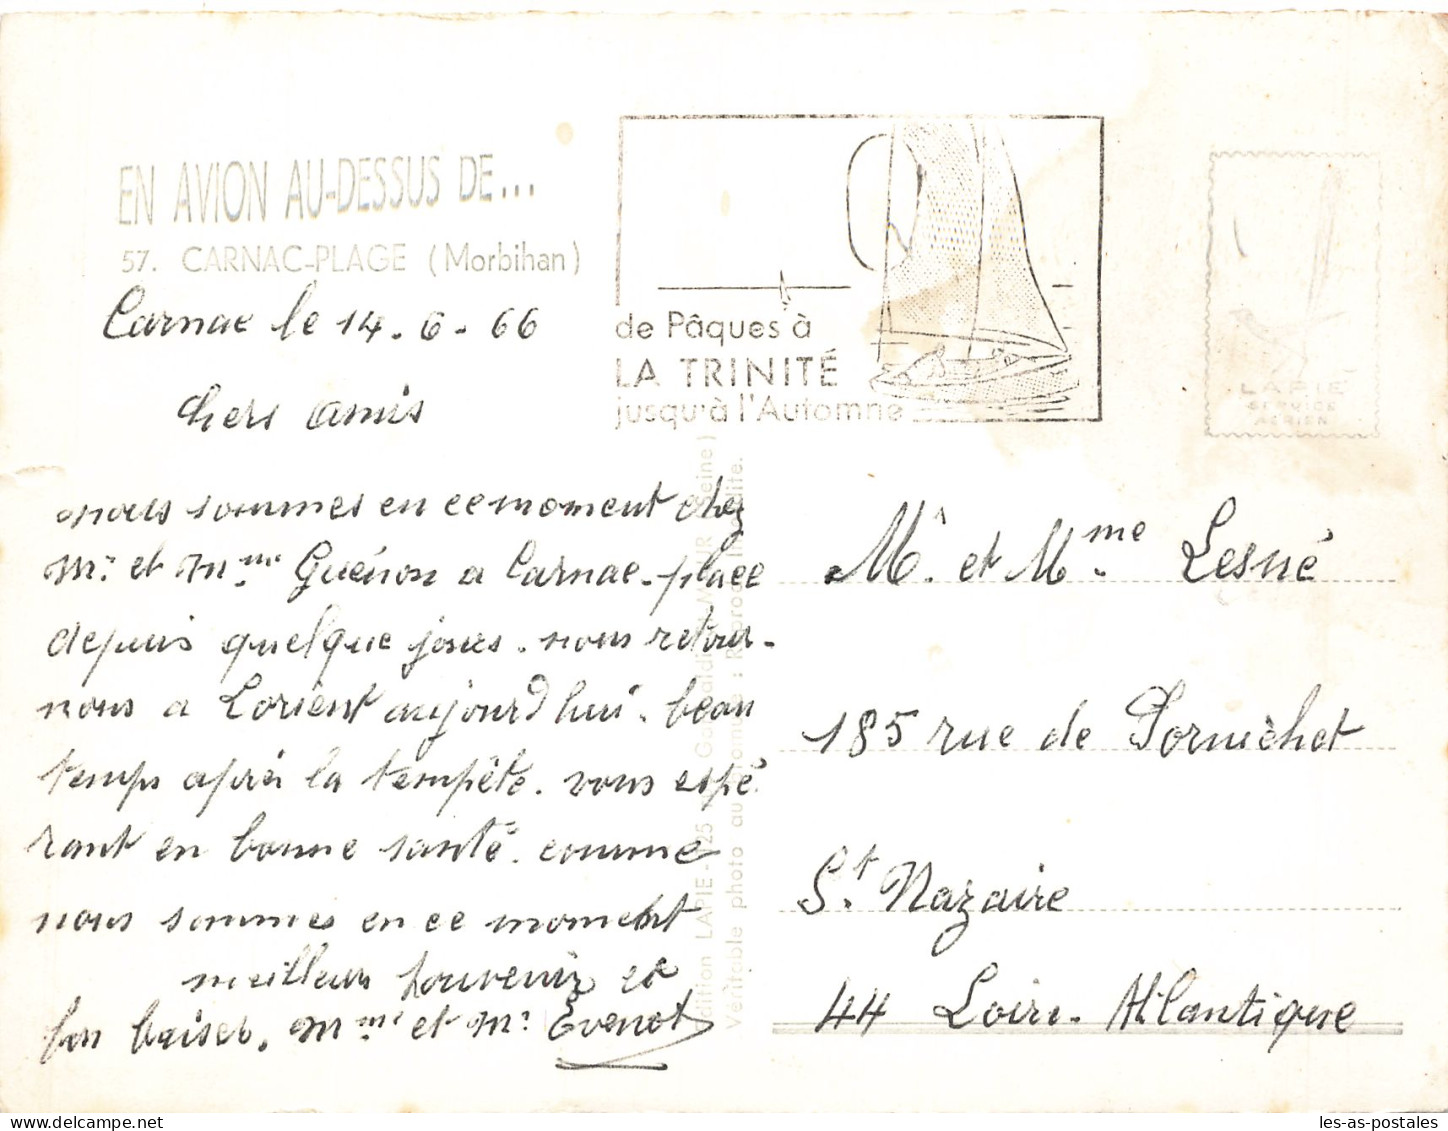 EN AVION AU-DESSUS DE...
57. CARNAC-PLAGE (Morbihan)
Carnac le 14-6-66
chers amis
nous sommes en ce moment chez
Mr et Mme Guénon a Carnac-plage
depuis quelque jours. nous retour-
nous a Lorient aujourd'hui. beau
temps après la tempête. vous espé
rant en bonne santé. comme
nous sommes en ce moment
meilleurs souvenir et
bon baiser. Mme et Mr Evenot
de Pâques à
LA TRINITÉ
jusqu'à l'Automne
LAPIE
SERVICE
AÉRIEN
Mr et Mme Lesné
185 rue de Pornichet
St Nazaire
44 Loire-Atlantique
dition LAPIE - 125
Véritable photo au
les-as-postales